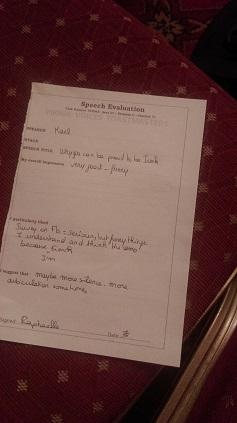 Speech Evaluation
VIKING VOICES TOASTMASTERS
SPEAKER Karl
SPEECH TITLE Why you can be proud to be Irish
My overall impression very good - funny
I particularly liked
Survey on Fb = serious, but funny things
I understand and think the same
because french
I'm
I suggest that maybe more silence. more
articulation sometimes
Raphaëlle
Date